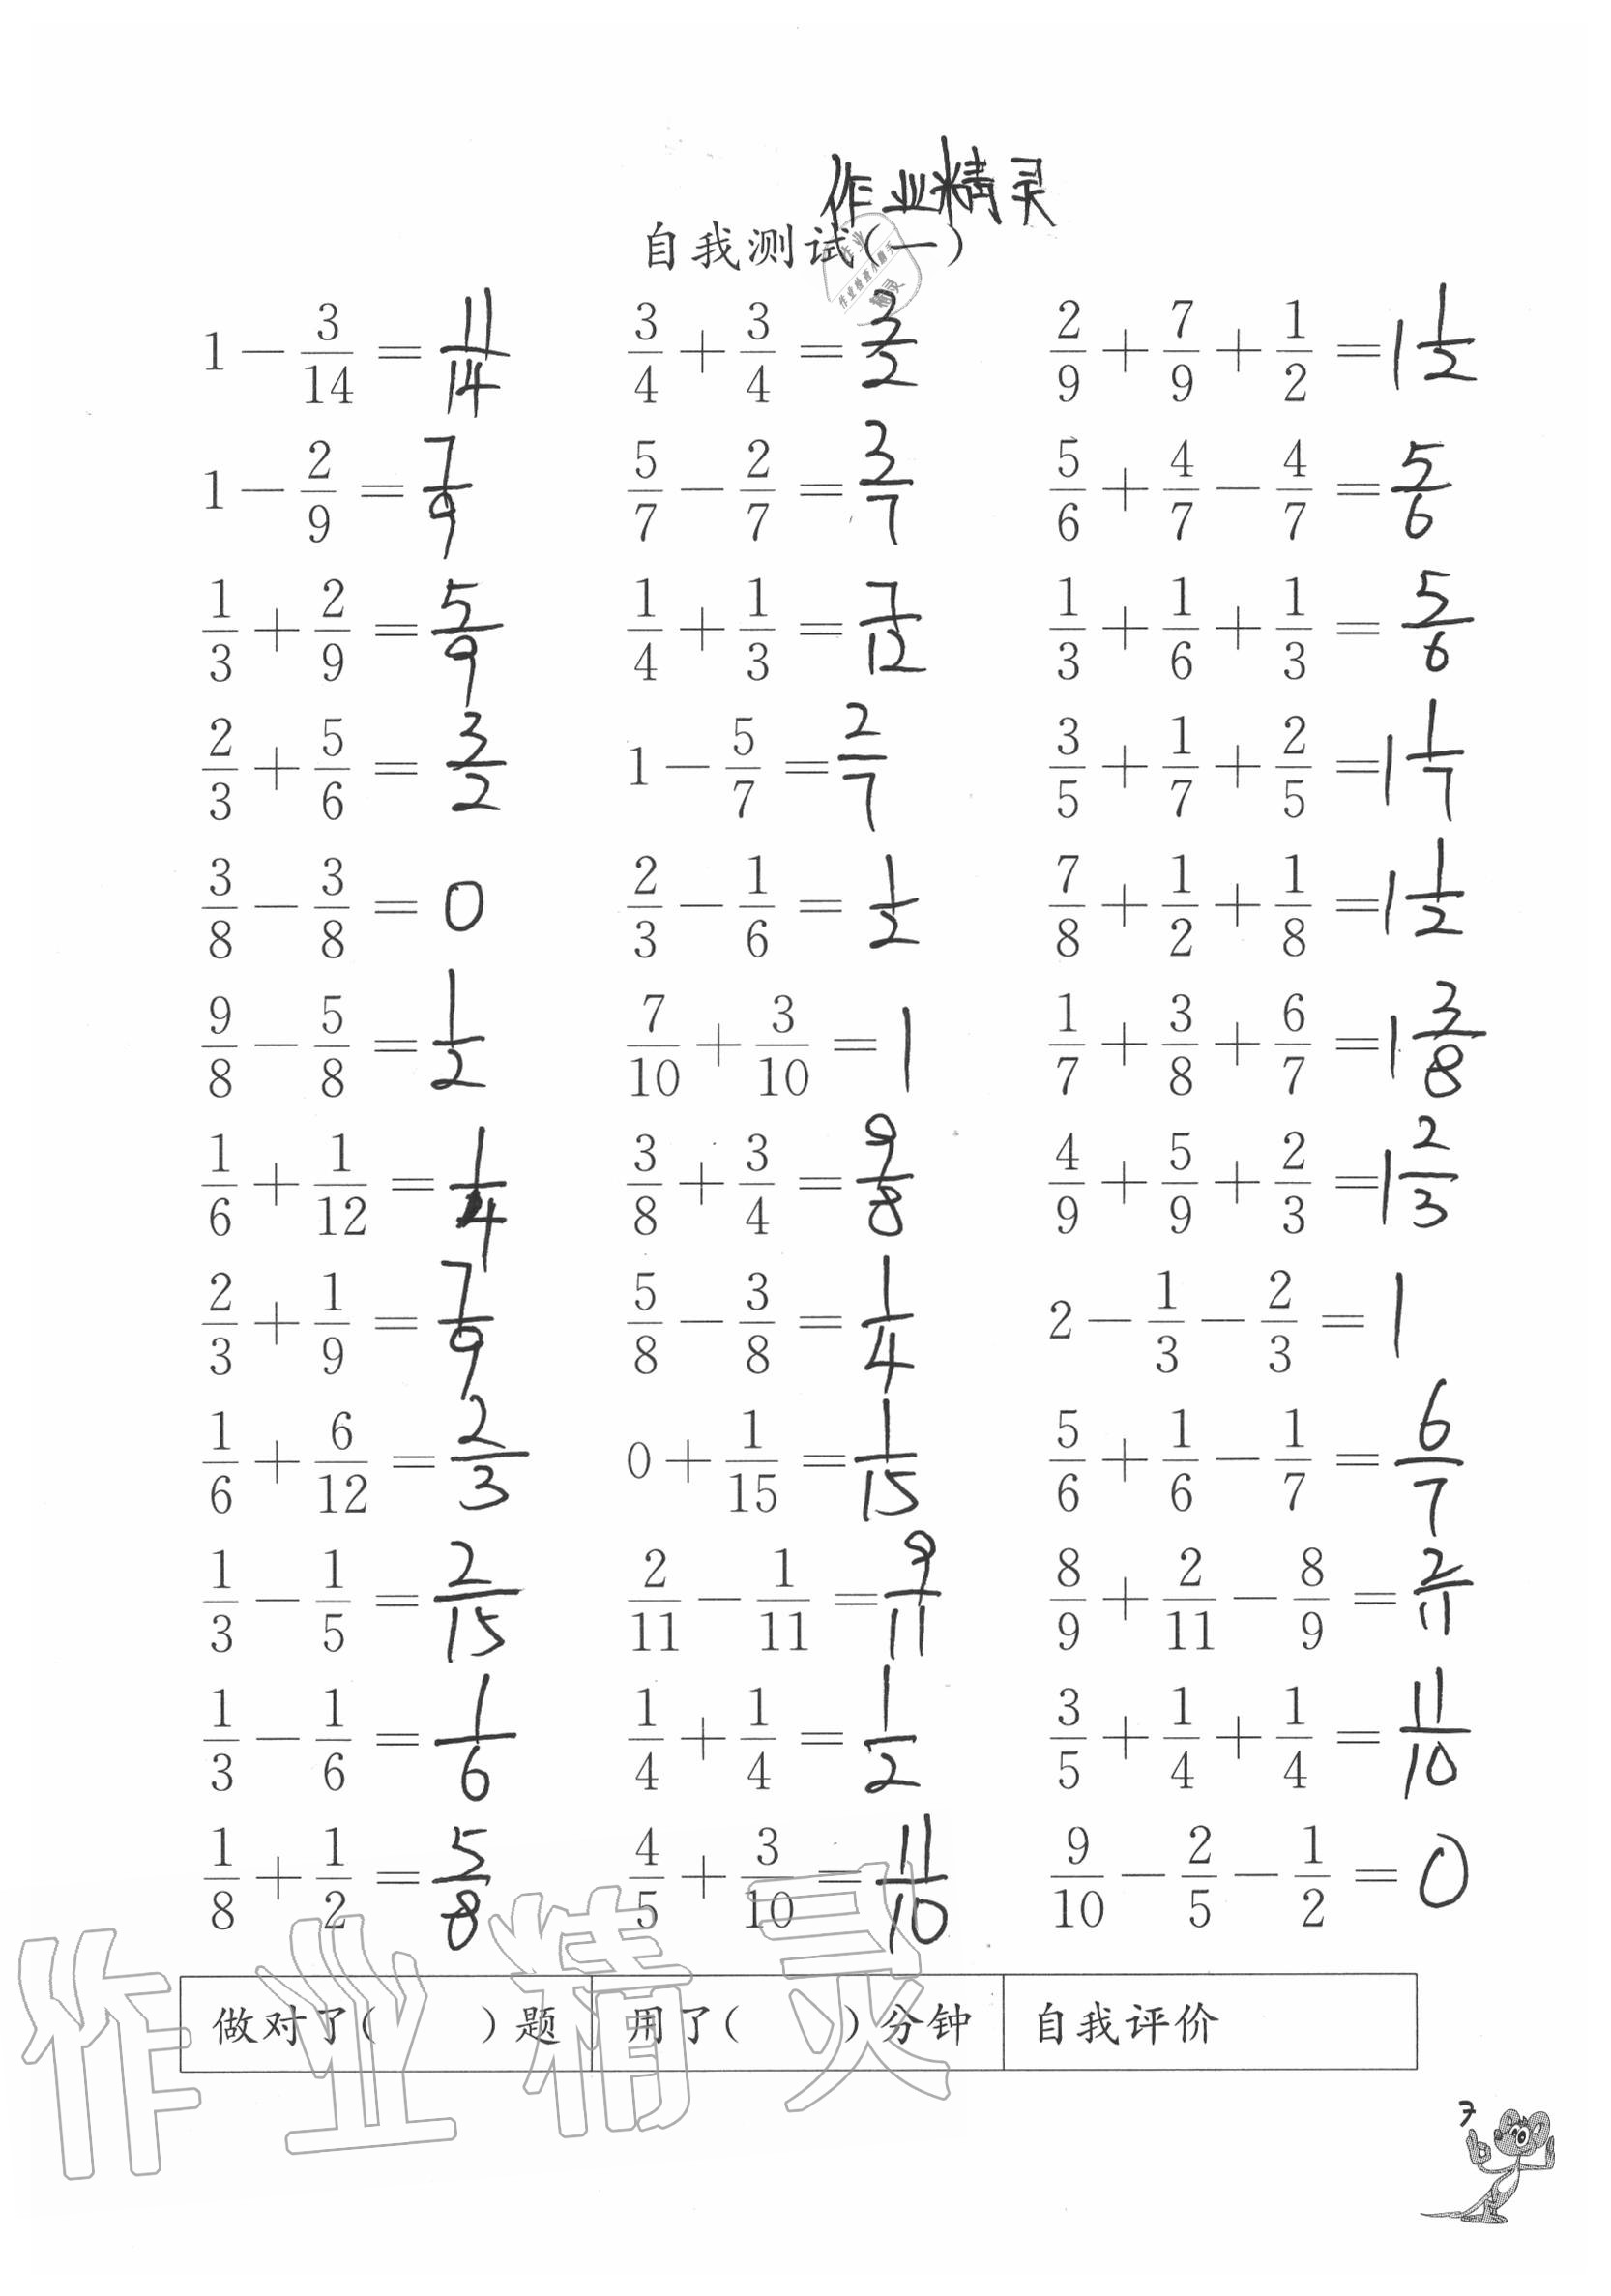 作业精灵
自我测试(一)
1－3/14＝11/14 3/4＋3/4＝3/2 2/9＋7/9＋1/2＝1 1/2
1－2/9＝7/9 5/7－2/7＝3/7 5/6＋4/7－4/7＝5/6
1/3＋2/9＝5/9 1/4＋1/3＝7/12 1/3＋1/6＋1/3＝5/6
2/3＋5/6＝3/2 1－5/7＝2/7 3/5＋1/7＋2/5＝1 1/7
3/8－3/8＝0 2/3－1/6＝1/2 7/8＋1/2＋1/8＝1 1/2
9/8－5/8＝1/2 7/10＋3/10＝1 1/7＋3/8＋6/7＝1 3/8
1/6＋1/12＝1/4 3/8＋3/4＝9/8 4/9＋5/9＋2/3＝1 2/3
2/3＋1/9＝7/9 5/8－3/8＝1/4 2－1/3－2/3＝1
1/6＋6/12＝2/3 0＋1/15＝1/15 5/6＋1/6－1/7＝6/7
1/3－1/5＝2/15 2/11－1/11＝9/11 8/9＋2/11－8/9＝2/11
1/3－1/6＝1/6 1/4＋1/4＝1/2 3/5＋1/4＋1/4＝11/10
1/8＋1/2＝5/8 4/5＋3/10＝11/10 9/10－2/5－1/2＝0
做对了( )题 用了( )分钟 自我评价
作业精灵
7